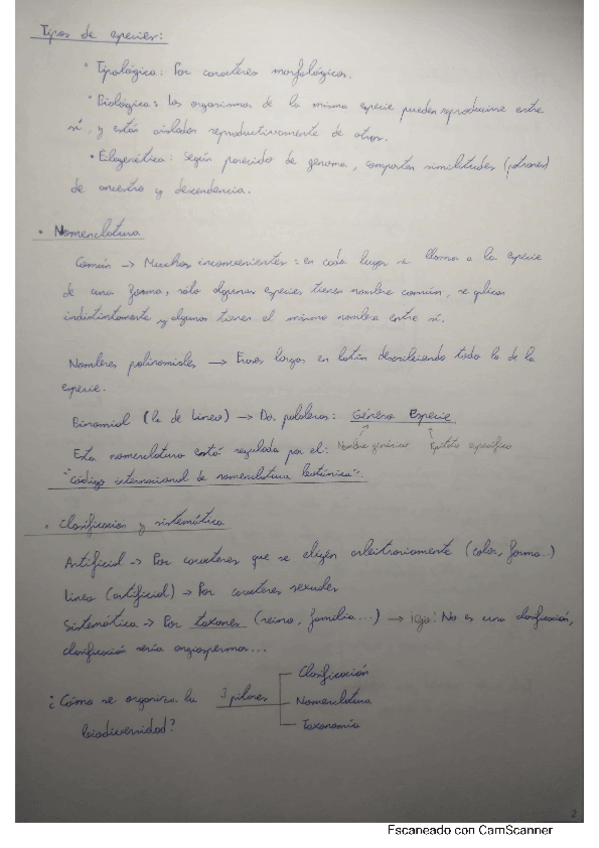 Tipos de especies:
• Tipológica: Por caracteres morfológicos.
• Biológica: los organismos de la misma especie pueden reproducirse entre
sí, y están aislados reproductivamente de otros.
• Filogenética: según parecido de genoma, comparten similitudes (patrones)
de ancestro y descendencia.
• Nomenclatura
Común → Muchos inconvenientes: en cada lugar se llama a la especie
de una forma, sólo algunas especies tienen nombre común, se aplican
indistintamente y algunas tienen el mismo nombre entre sí.
Nombres polinomiales → Frases largas en latín describiendo todo lo de la
especie.
Binomial (la de Lineo) → Dos palabras: Género Especie
Esta nomenclatura está regulada por el: Nombre genérico Epíteto específico
"Código internacional de nomenclatura botánica".
• Clasificación y sistemática
Artificial → Por caracteres que se eligen arbitrariamente (color, forma...)
Lineo (artificial) → Por caracteres sexuales
Sistemática → Por taxones (reino, familia...) → ¡ojo! No es una clasificación,
clasificación sería angiospermas...
¿Cómo se organiza la 3 pilares Clasificación
biodiversidad? Nomenclatura
Taxonomía
2
Escaneado con CamScanner